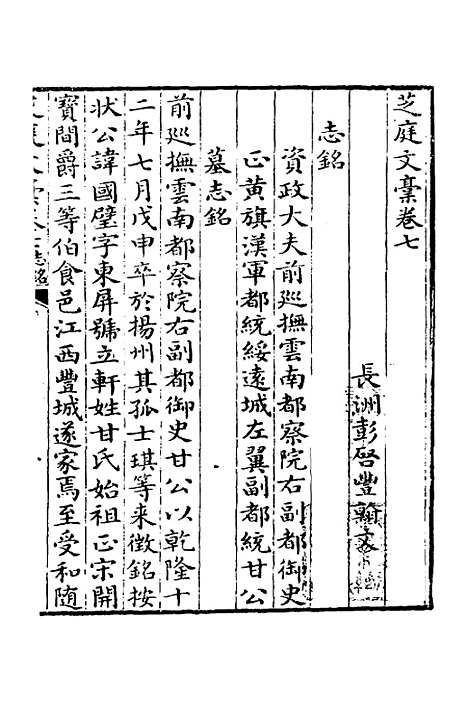 芝庭文稾卷七
長洲彭啓豐翰文
志銘
資政大夫前廵撫雲南都察院右副都御史
正黃旗漢軍都統綏遠城左翼副都統甘公
墓志銘
前廵撫雲南都察院右副都御史甘公以乾隆十
二年七月戊申卒於揚州其孤士琪等来徵銘按
状公諱國璧字東屏號立軒姓甘氏始祖正宋開
寶間爵三等伯食邑江西豐城遂家焉至受和隨